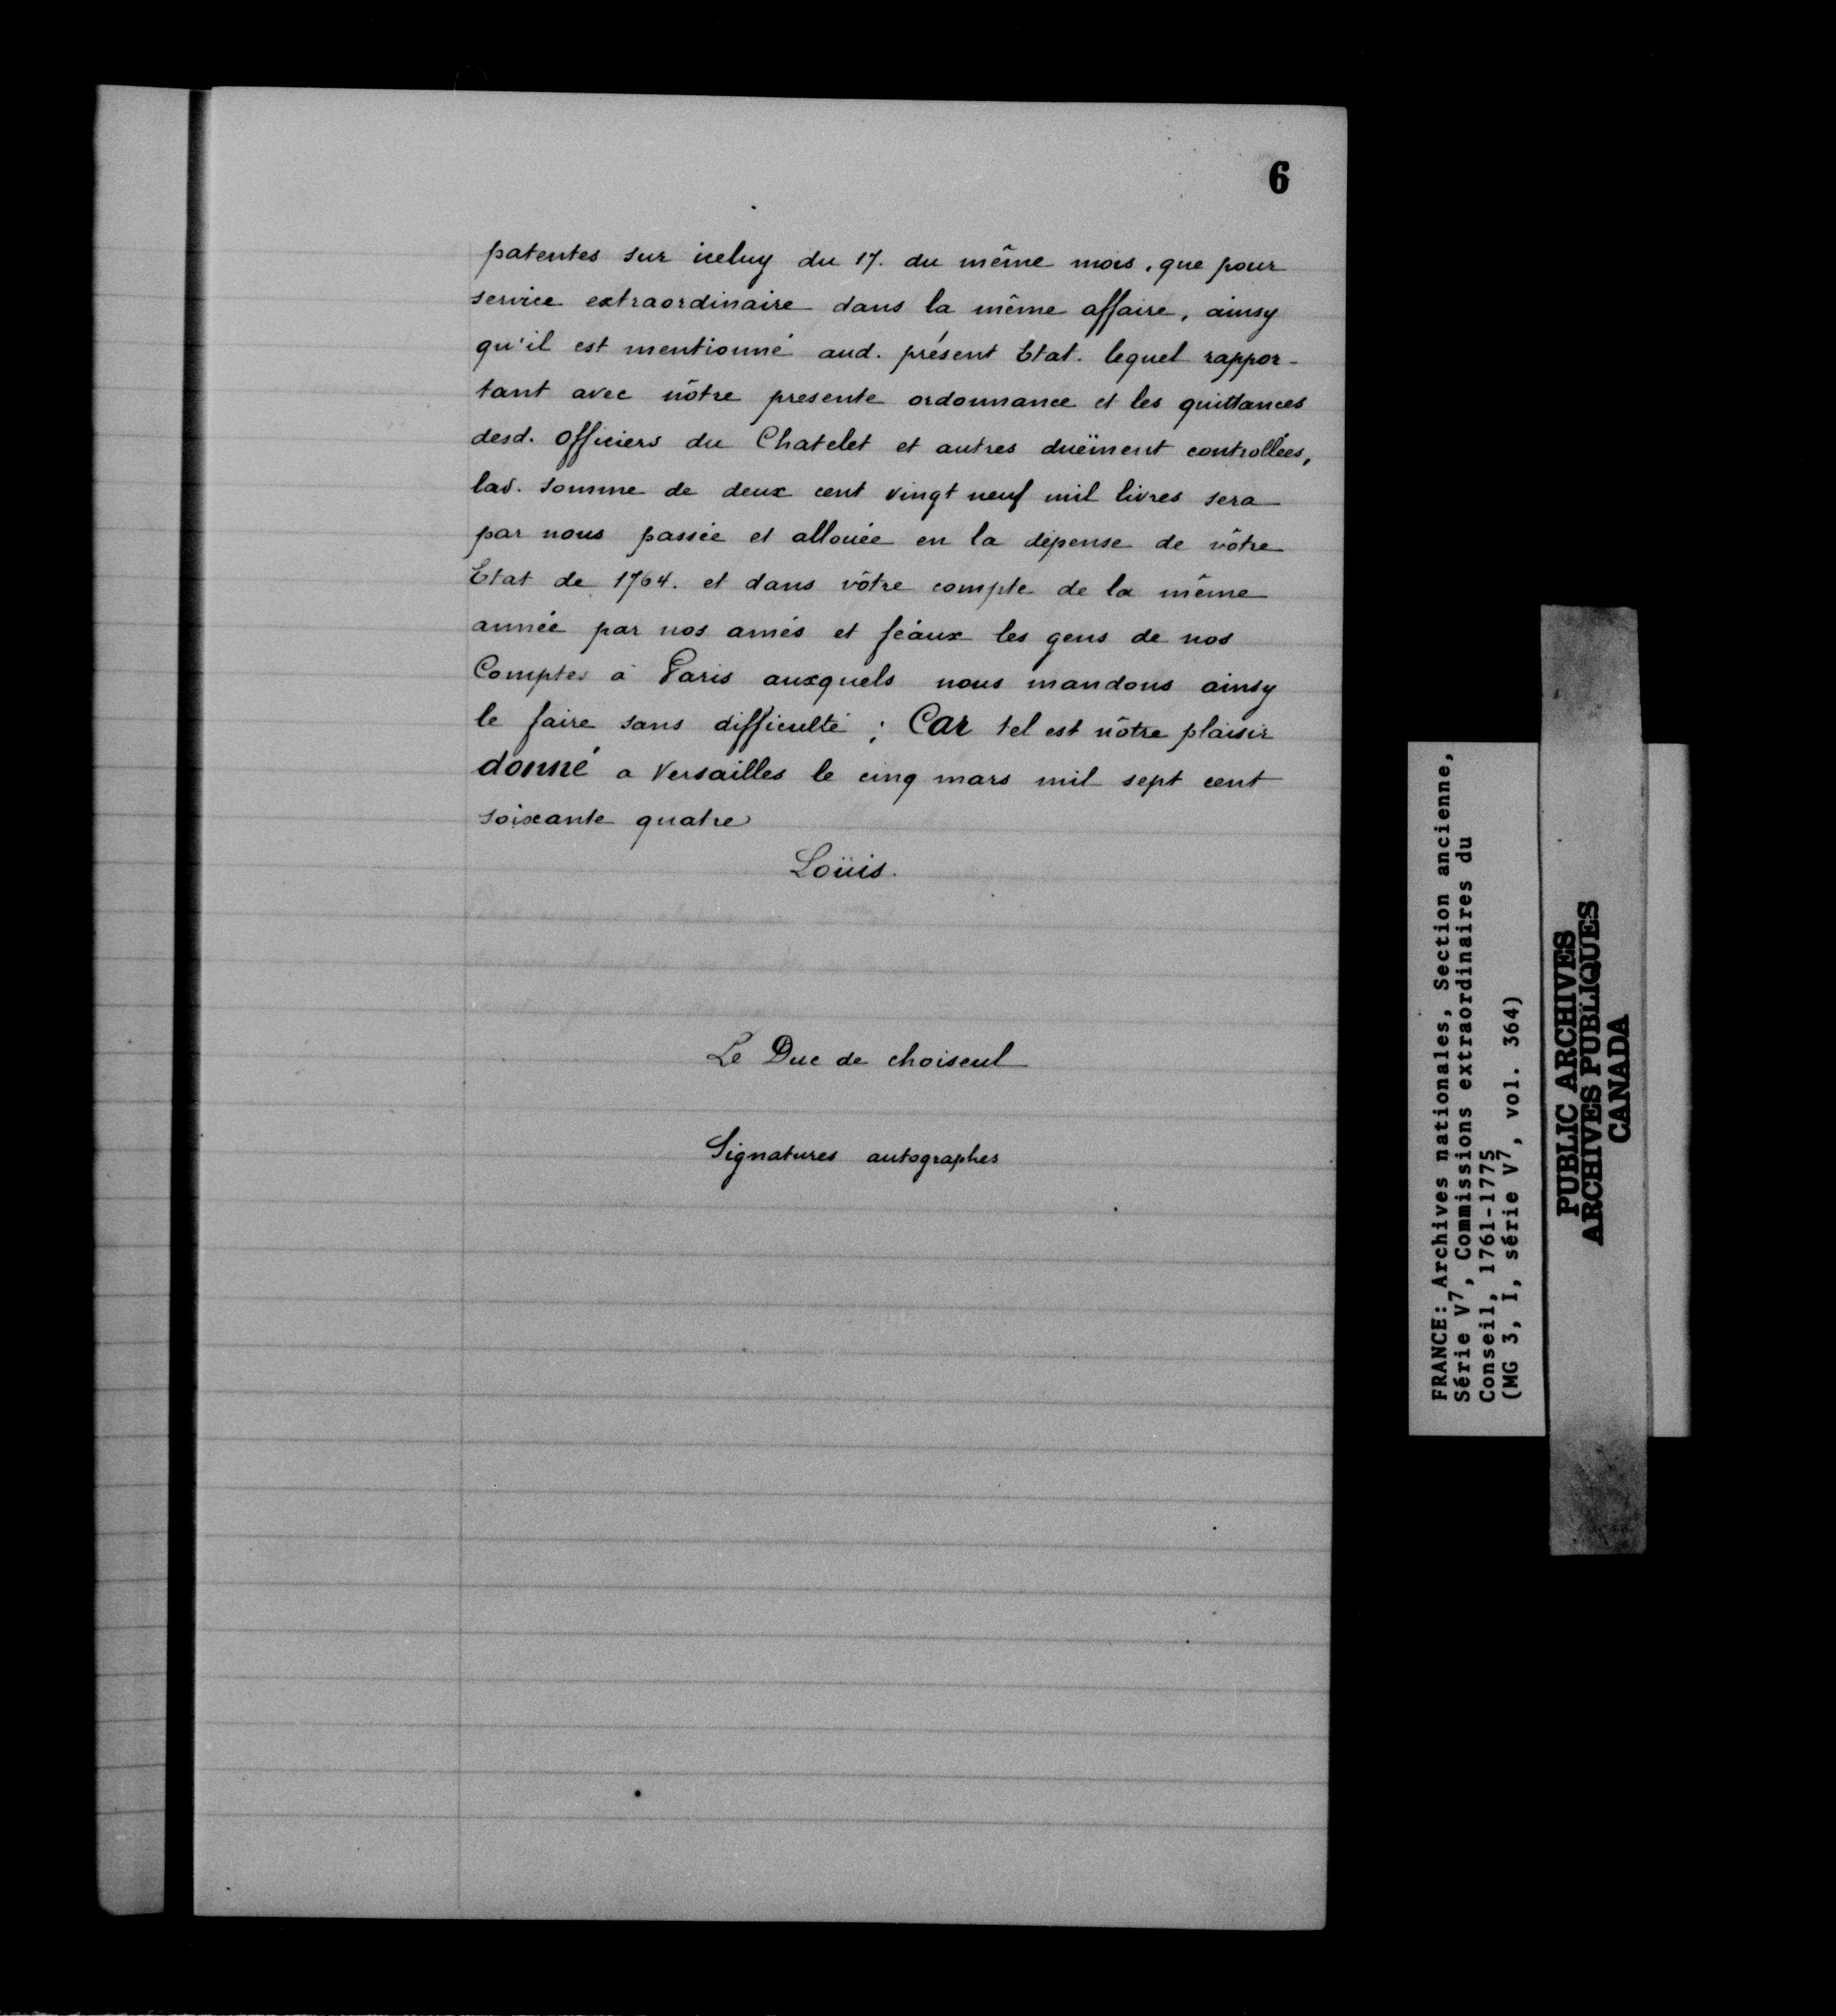 6
patentes sur iceluy du 17. du même mois, que pour
service extraordinaire dans la même affaire, ainsy
qu'il est mentionné aud. présent Etat. lequel rappor-
tant avec nôtre presente ordonnance et les quittances
desd. Officiers du Chatelet et autres duëment controllées,
lad. somme de deux cent vingt neuf mil livres sera
par nous passée et allouée en la dépense de vôtre
Etat de 1764. et dans vôtre compte de la même
année par nos amés et féaux les gens de nos
Comptes à Paris auxquels nous mandons ainsy
le faire sans difficulté ; Car tel est nôtre plaisir
donné a Versailles le cinq mars mil sept cent
soixante quatre
Loüis.
Le Duc de choiseul
Signatures autographes
FRANCE: Archives nationales, Section ancienne,
Série V7, Commissions extraordinaires du
Conseil, 1761-1775
(MG 3, I, série V7, vol. 364)
PUBLIC ARCHIVES
ARCHIVES PUBLIQUES
CANADA